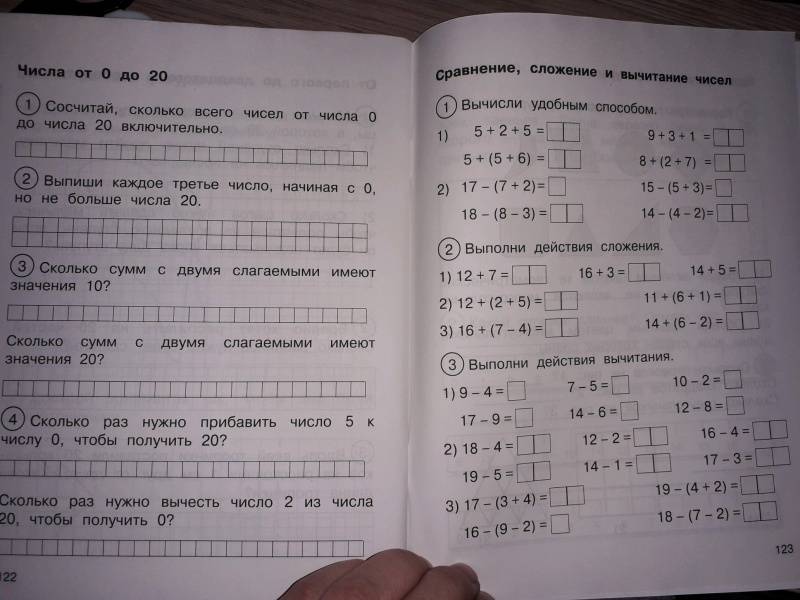 Числа от 0 до 20
1 Сосчитай, сколько всего чисел от числа 0
до числа 20 включительно.
2 Выпиши каждое третье число, начиная с 0,
но не больше числа 20.
3 Сколько сумм с двумя слагаемыми имеют
значения 10?
Сколько сумм с двумя слагаемыми имеют
значения 20?
4 Сколько раз нужно прибавить число 5 к
числу 0, чтобы получить 20?
Сколько раз нужно вычесть число 2 из числа
20, чтобы получить 0?
122
Сравнение, сложение и вычитание чисел
1 Вычисли удобным способом.
1) 5 + 2 + 5 = 9 + 3 + 1 =
5 + (5 + 6) = 8 + (2 + 7) =
2) 17 – (7 + 2)= 15 – (5 + 3)=
18 – (8 – 3) = 14 – (4 – 2)=
2 Выполни действия сложения.
1) 12 + 7 = 16 + 3 = 14 + 5 =
2) 12 + (2 + 5) = 11 + (6 + 1) =
3) 16 + (7 – 4) = 14 + (6 – 2) =
3 Выполни действия вычитания.
1) 9 – 4 = 7 – 5 = 10 – 2 =
17 – 9 = 14 – 6 = 12 – 8 =
2) 18 – 4 = 12 – 2 = 16 – 4 =
19 – 5 = 14 – 1 = 17 – 3 =
3) 17 – (3 + 4) = 19 – (4 + 2) =
16 – (9 – 2) = 18 – (7 – 2) =
123